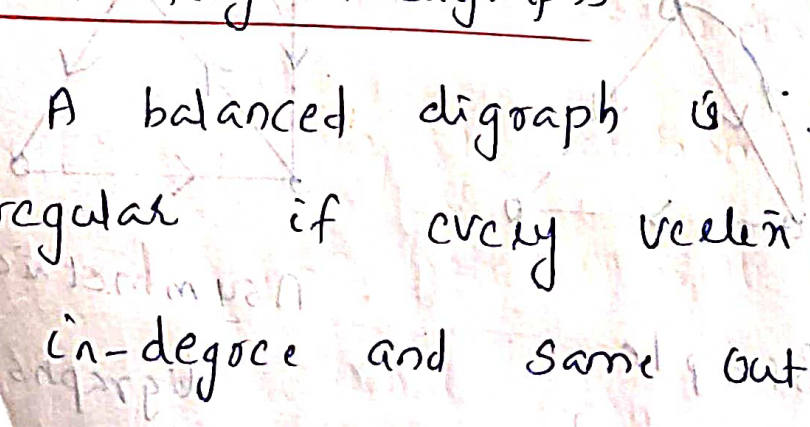 A balanced digraph is
regular if every vertex
in-degree and same out